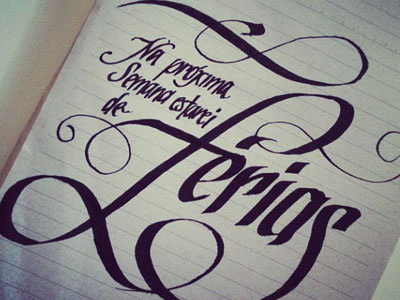 Na próxima
Semana estarei
de
Ferias